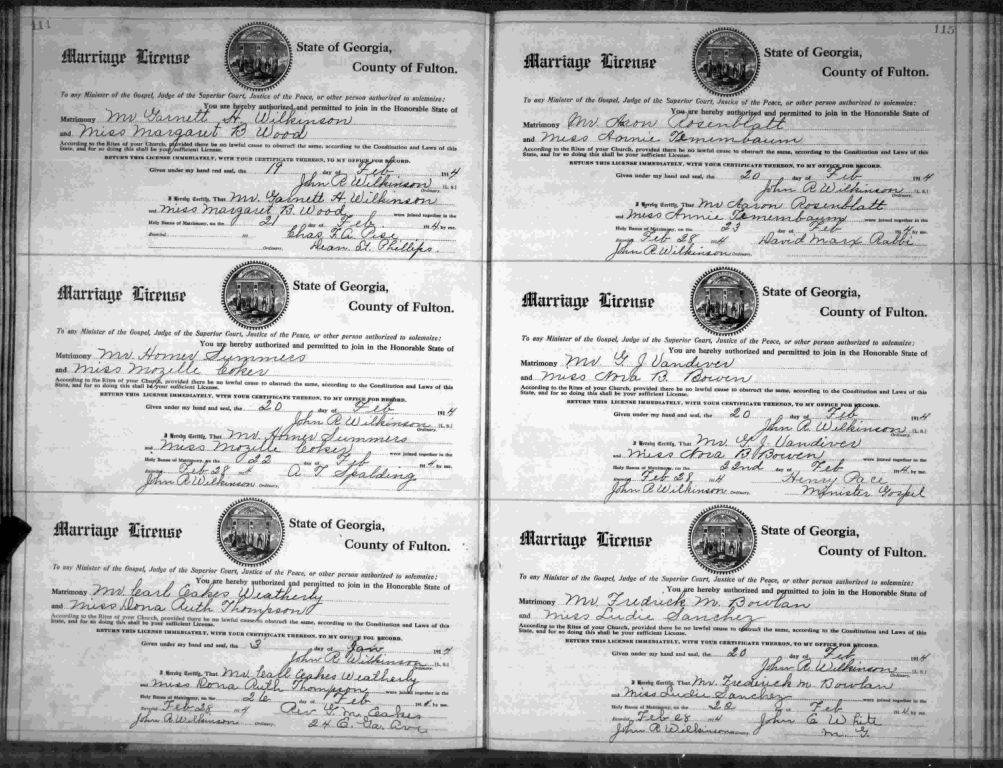 114
Marriage License
State of Georgia,
County of Fulton.
To any Minister of the Gospel, Judge of the Superior Court, Justice of the Peace, or other person authorized to solemnize:
You are hereby authorized and permitted to join in the Honorable State of
Matrimony Mr Garnett H. Wilkinson
and Miss Margaret B Wood
According to the Rites of your Church, provided there be no lawful cause to obstruct the same, according to the Constitution and Laws of this
State, and for so doing this shall be your sufficient License.
RETURN THIS LICENSE IMMEDIATELY, WITH YOUR CERTIFICATE THEREON, TO MY OFFICE FOR RECORD.
Given under my hand and seal, the 19 day of Feb 1914
John R Wilkinson (L. S.)
Ordinary.
I Hereby Certify, That Mr. Garnett H. Wilkinson
and Miss Margaret B. Wood were joined together in the
Holy Banns of Matrimony, on the 21 day of Feb 1914 by me.
Recorded 191 Chas. T. A. Pise
Ordinary. Dean St. Phillips
Marriage License
State of Georgia,
County of Fulton.
To any Minister of the Gospel, Judge of the Superior Court, Justice of the Peace, or other person authorized to solemnize:
You are hereby authorized and permitted to join in the Honorable State of
Matrimony Mr Homer Summers
and Miss Mozelle Coker
According to the Rites of your Church, provided there be no lawful cause to obstruct the same, according to the Constitution and Laws of this
State, and for so doing this shall be your sufficient License.
RETURN THIS LICENSE IMMEDIATELY, WITH YOUR CERTIFICATE THEREON, TO MY OFFICE FOR RECORD.
Given under my hand and seal, the 20 day of Feb 1914
John R Wilkinson (L. S.)
Ordinary.
I Hereby Certify, That Mr. Homer Summers
and Miss Mozelle Coker were joined together in the
Holy Banns of Matrimony, on the 22 day of Feb 1914 by me.
Recorded Feb 28 1914 A. T. Spalding
John R Wilkinson Ordinary.
Marriage License
State of Georgia,
County of Fulton.
To any Minister of the Gospel, Judge of the Superior Court, Justice of the Peace, or other person authorized to solemnize:
You are hereby authorized and permitted to join in the Honorable State of
Matrimony Mr Carl Eakes Weatherly
and Miss Rona Ruth Thompson
According to the Rites of your Church, provided there be no lawful cause to obstruct the same, according to the Constitution and Laws of this
State, and for so doing this shall be your sufficient License.
RETURN THIS LICENSE IMMEDIATELY, WITH YOUR CERTIFICATE THEREON, TO MY OFFICE FOR RECORD.
Given under my hand and seal, the 3 day of Jan 1914
John R Wilkinson (L. S.)
Ordinary.
I Hereby Certify, That Mr Carl Eakes Weatherly
and Miss Rona Ruth Thompson were joined together in the
Holy Banns of Matrimony, on the 26 day of Feb 1914 by me.
Recorded Feb 28 1914 Rev G. M. Eakes
John R Wilkinson Ordinary. 24 E. Ga. Ave
115
Marriage License
State of Georgia,
County of Fulton.
To any Minister of the Gospel, Judge of the Superior Court, Justice of the Peace, or other person authorized to solemnize:
You are hereby authorized and permitted to join in the Honorable State of
Matrimony Mr Aron Rosenblatt
and Miss Annie Tenenbaum
According to the Rites of your Church, provided there be no lawful cause to obstruct the same, according to the Constitution and Laws of this
State, and for so doing this shall be your sufficient License.
RETURN THIS LICENSE IMMEDIATELY, WITH YOUR CERTIFICATE THEREON, TO MY OFFICE FOR RECORD.
Given under my hand and seal, the 20 day of Feb 1914
John R Wilkinson (L. S.)
Ordinary.
I Hereby Certify, That Mr Aaron Rosenblatt
and Miss Annie Tenenbaum were joined together in the
Holy Banns of Matrimony, on the 23 day of Feb 1914 by me.
Recorded Feb 28 1914 David Marx Rabbi
John R Wilkinson Ordinary.
Marriage License
State of Georgia,
County of Fulton.
To any Minister of the Gospel, Judge of the Superior Court, Justice of the Peace, or other person authorized to solemnize:
You are hereby authorized and permitted to join in the Honorable State of
Matrimony Mr. G. J. Vandiver
and Miss Nora B. Bowen
According to the Rites of your Church, provided there be no lawful cause to obstruct the same, according to the Constitution and Laws of this
State, and for so doing this shall be your sufficient License.
RETURN THIS LICENSE IMMEDIATELY, WITH YOUR CERTIFICATE THEREON, TO MY OFFICE FOR RECORD.
Given under my hand and seal, the 20 day of Feb 1914
John R Wilkinson (L. S.)
Ordinary.
I Hereby Certify, That Mr. G. J. Vandiver
and Miss Nora B. Bowen were joined together in the
Holy Banns of Matrimony, on the 22nd day of Feb 1914 by me.
Recorded Feb 28 1914 Henry Pace
John R Wilkinson Ordinary. Minister Gospel
Marriage License
State of Georgia,
County of Fulton.
To any Minister of the Gospel, Judge of the Superior Court, Justice of the Peace, or other person authorized to solemnize:
You are hereby authorized and permitted to join in the Honorable State of
Matrimony Mr. Fredrick M. Bowlan
and Miss Ludie Sanchez
According to the Rites of your Church, provided there be no lawful cause to obstruct the same, according to the Constitution and Laws of this
State, and for so doing this shall be your sufficient License.
RETURN THIS LICENSE IMMEDIATELY, WITH YOUR CERTIFICATE THEREON, TO MY OFFICE FOR RECORD.
Given under my hand and seal, the 20 day of Feb 1914
John R Wilkinson (L. S.)
Ordinary.
I Hereby Certify, That Mr. Frederick M. Bowlan
and Miss Ludie Sanchez were joined together in the
Holy Banns of Matrimony, on the 22 day of Feb 1914 by me.
Recorded Feb 28 1914 John E White
John R Wilkinson Ordinary. M. G.